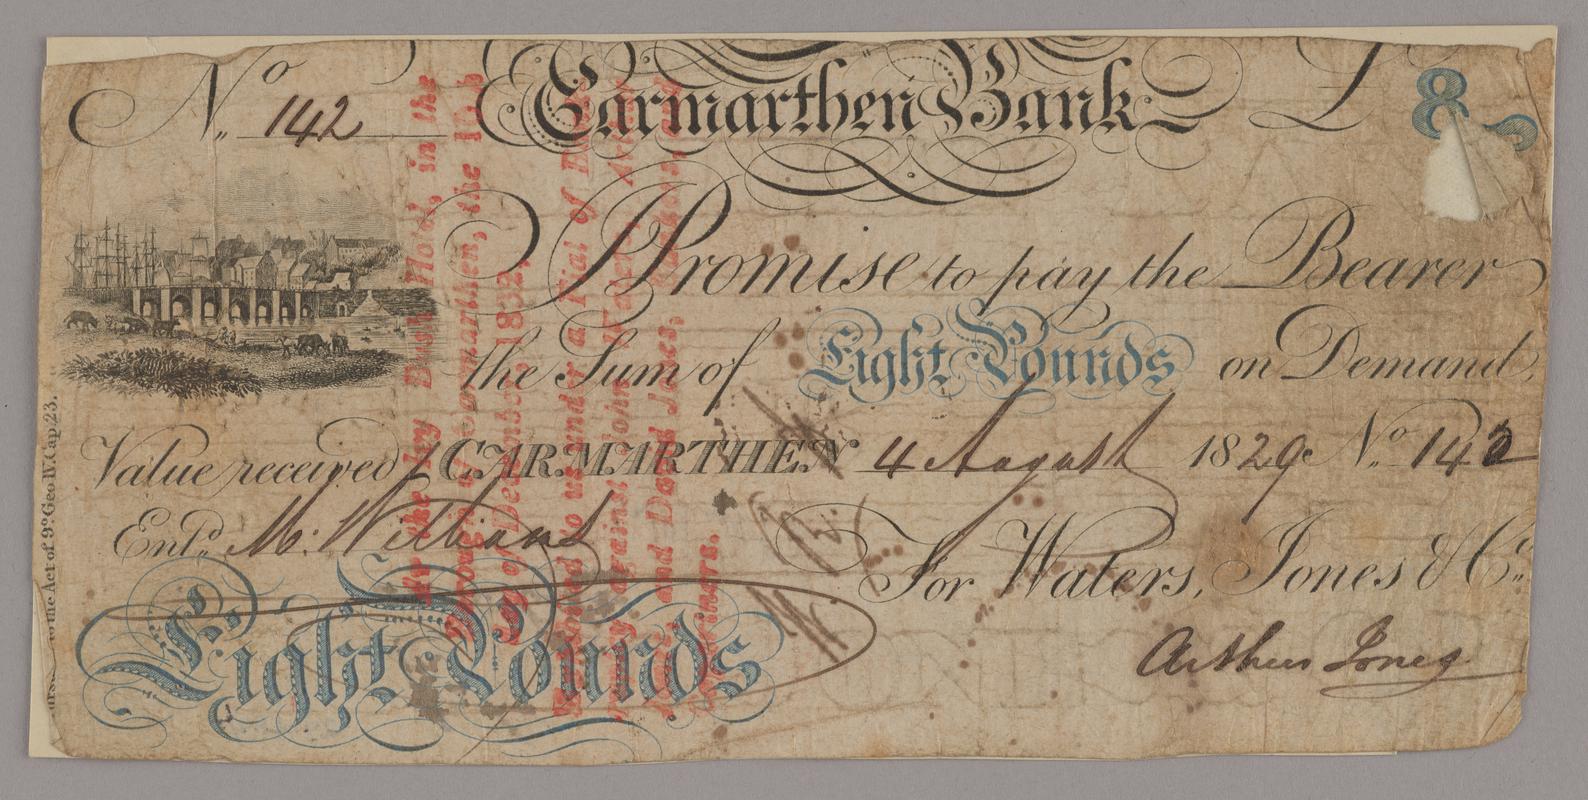 No. 142
Carmarthen Bank
£ 8
Promise to pay the Bearer
the Sum of Eight Pounds on Demand,
Value received CARMARTHEN 4 August 1829 No. 142
Entd. M: Williams
For Waters, Jones & Co.
Eight Pounds
Arthur Jones
to the Act of 9o. Geo IV. Cap 23.
the Bush Hotel, in the
of Carmarthen, the 10th
of December 1832,
under a Fiat of
against John
and David Jones,